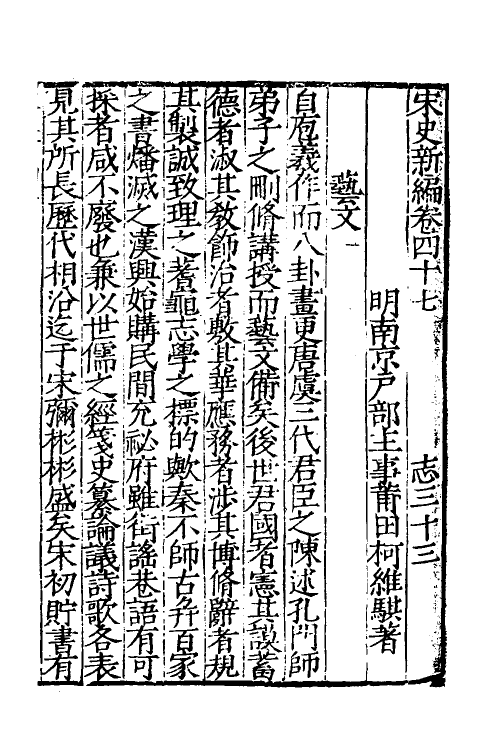 宋史新編卷四十七　志三十三
明南京戶部主事莆田柯維騏著
藝文一
自庖羲作而八卦畫更唐虞三代君臣之陳述孔門師
弟子之刪脩講授而藝文備矣後世君國者憲其謨蓄
德者淑其敎飾治者敷其華應務者涉其博脩辭者規
其製誠致理之蓍龜志學之標的歟秦不師古弁百家
之書燔滅之漢興始購民間充祕府雖街謠巷語有可
採者咸不廢也兼以世儒之經箋史纂論議詩歌各表
見其所長歷代相沿迄于宋彌彬彬盛矣宋初貯書有